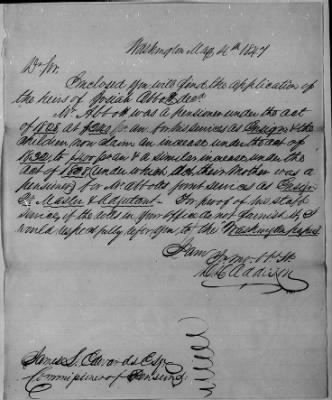 Washington May 4th 1847
Dr Sir.
Enclosed You will find the application of
the heirs of Josiah Abbott decd.
Mr. Abbott was a pensioner under the act
of 1828 at $240 pr an. for his services as Ensign & the
Children now claim an increase under the act of
1832, to $400 pr an & a similar increase under the
Act of 1838 under which Act their Mother was a
pensioner for Mr Abbotts joint services as Ensign
Qr Master & Adjutant. For proof of his staff
service if the rolls in Your office do not furnish it, I
would respectfully refer you to the Washington papers
I am
Yr mo. ob St.
Addison
James L. Edwards Esqr
Commissioner of Pensions